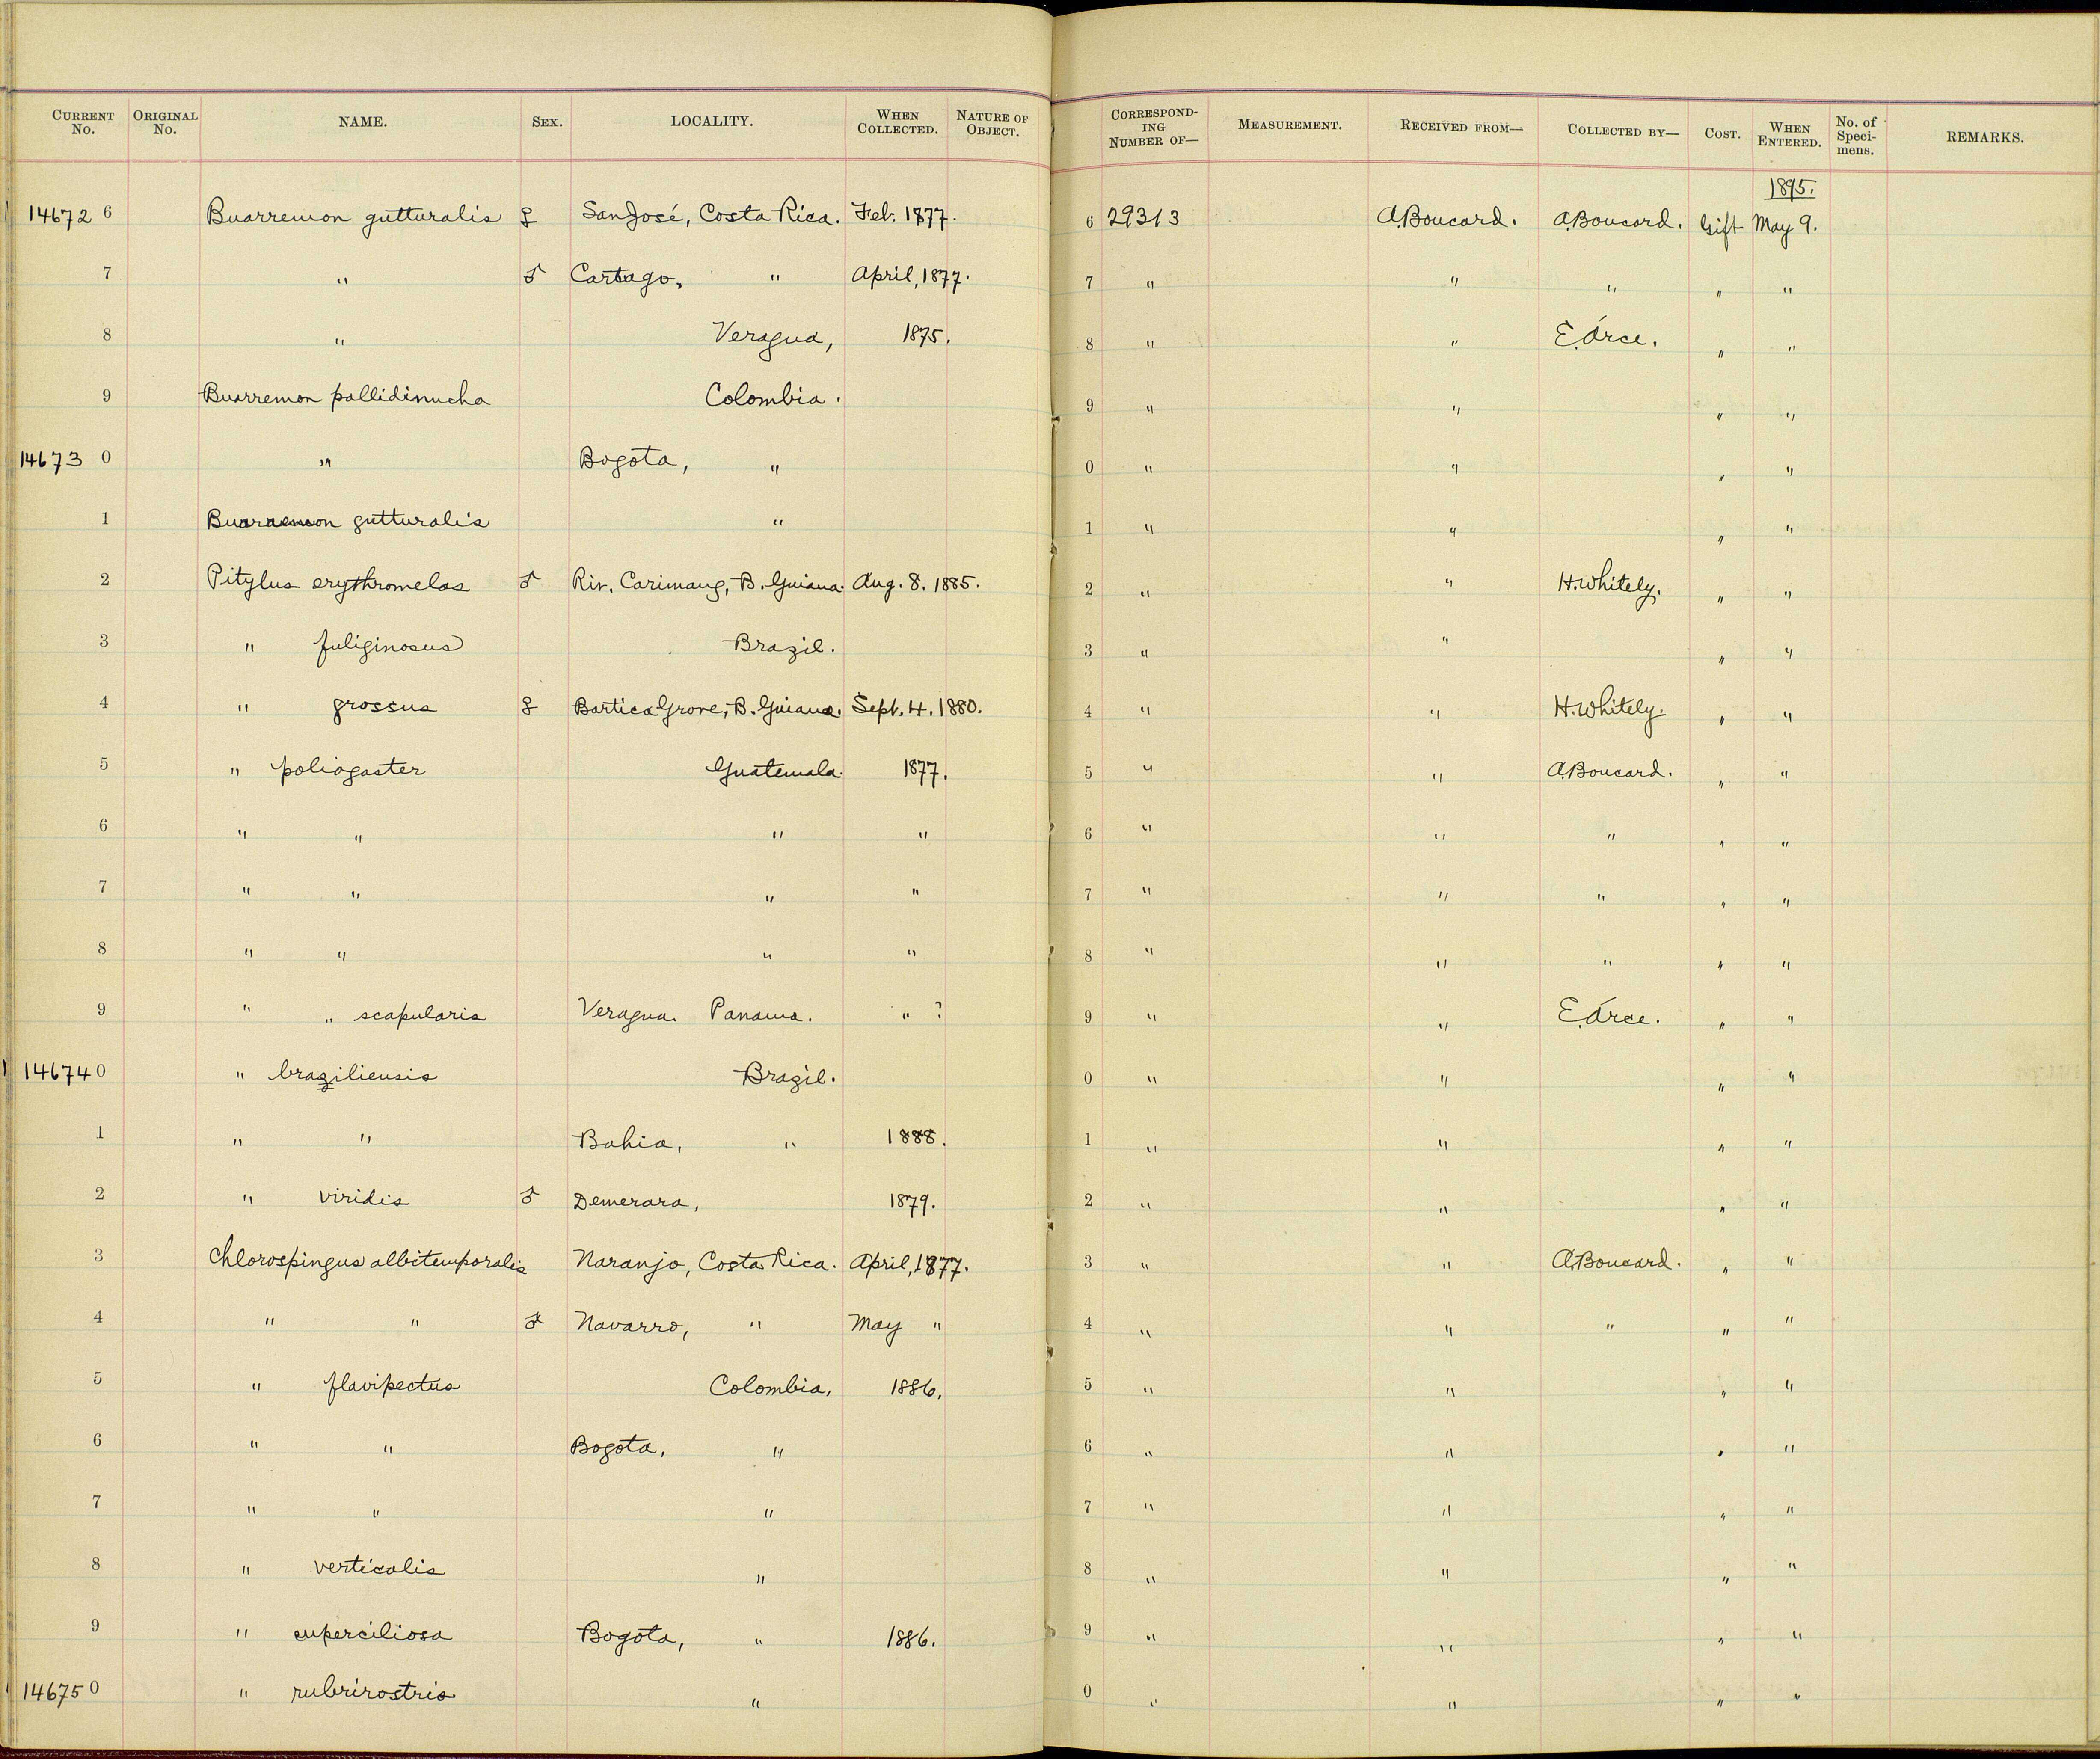 CURRENT No. ORIGINAL No. NAME. SEX. LOCALITY. WHEN COLLECTED. NATURE OF OBJECT. CORRESPONDING NUMBER OF— MEASUREMENT. RECEIVED FROM— COLLECTED BY— COST. WHEN ENTERED. No. of Specimens. REMARKS.
1895.
14672 6 Buarremon gutturalis ♀ San José, Costa Rica. Feb. 1877. 6 29313 A. Boucard. A. Boucard. Gift May 9.
7 " ♂ Cartago, " April, 1877. 7 " " " " "
8 " Veragua, 1875. 8 " " E. Arce. " "
9 Buarremon pallidinucha Colombia. 9 " " " "
14673 0 " Bogota, " 0 " " " "
1 Buarremon gutturalis " 1 " " " "
2 Pitylus erythromelas ♂ Riv. Carimang, B. Guiana. Aug. 8. 1885. 2 " " H. Whitely. " "
3 " fuliginosus Brazil. 3 " " " "
4 " grossus ♀ Bartica Grove, B. Guiana. Sept. 4. 1880. 4 " " H. Whitely. " "
5 " poliogaster Guatemala. 1877. 5 " " A. Boucard. " "
6 " " " " 6 " " " " "
7 " " " " 7 " " " " "
8 " " " " 8 " " " " "
9 " " scapularis Veragua. Panama. " ? 9 " " E. Arce. " "
14674 0 " braziliensis Brazil. 0 " " " "
1 " " Bahia, " 1888. 1 " " " "
2 " viridis ♂ Demerara, 1879. 2 " " " "
3 Chlorospingus albitemporalis Naranjo, Costa Rica. April, 1877. 3 " " A. Boucard. " "
4 " " ♂ Navarro, " May " 4 " " " " "
5 " flavipectus Colombia, 1886. 5 " " " "
6 " " Bogota, " 6 " " " "
7 " " " 7 " " " "
8 " verticalis " 8 " " " "
9 " superciliosa Bogota, " 1886. 9 " " " "
14675 0 " rubrirostris " 0 " " " "